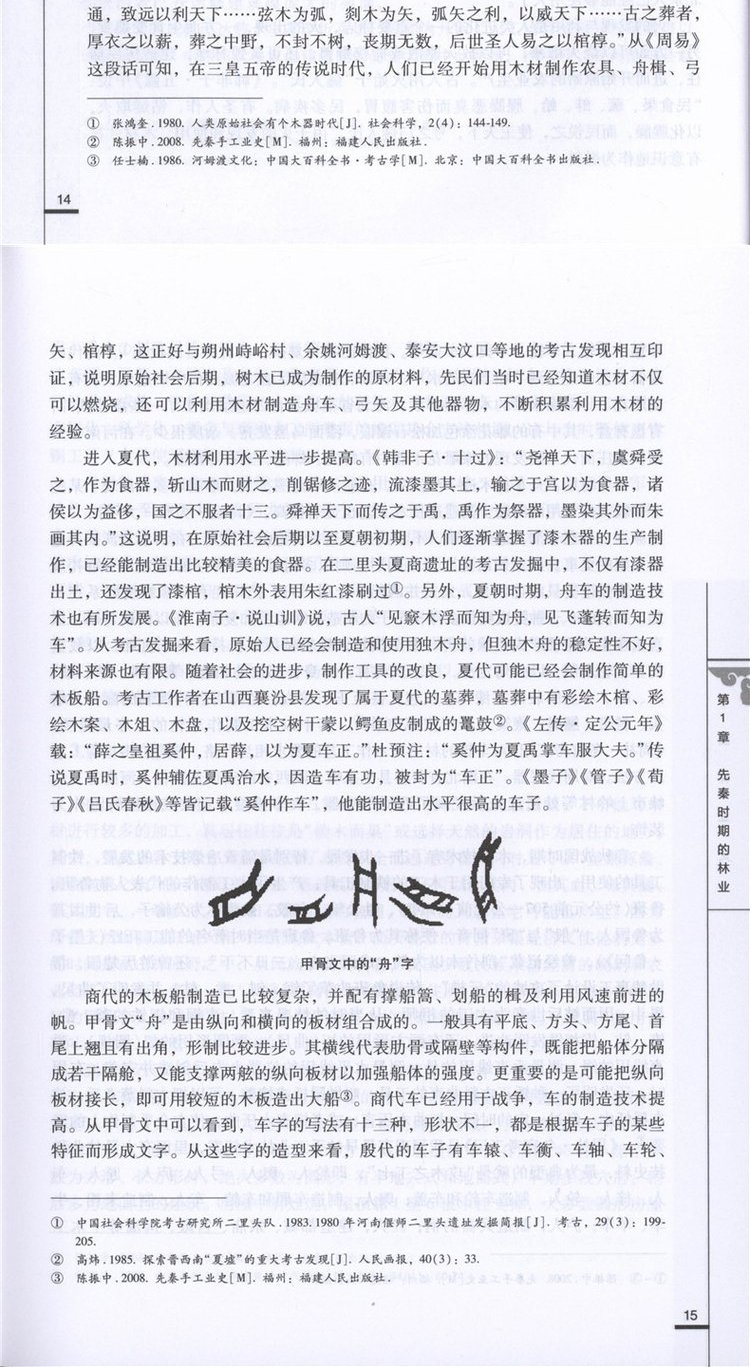 通，致远以利天下……弦木为弧，剡木为矢，弧矢之利，以威天下……古之葬者，
厚衣之以薪，葬之中野，不封不树，丧期无数，后世圣人易之以棺椁。”从《周易》
这段话可知，在三皇五帝的传说时代，人们已经开始用木材制作农具、舟楫、弓
① 张鸿奎. 1980. 人类原始社会有个木器时代[J]. 社会科学, 2(4): 144-149.
② 陈振中. 2008. 先秦手工业史[M]. 福州: 福建人民出版社.
③ 任士楠. 1986. 河姆渡文化: 中国大百科全书·考古学[M]. 北京: 中国大百科全书出版社.
14
矢、棺椁，这正好与朔州峙峪村、余姚河姆渡、泰安大汶口等地的考古发现相互印
证，说明原始社会后期，树木已成为制作的原材料，先民们当时已经知道木材不仅
可以燃烧，还可以利用木材制造舟车、弓矢及其他器物，不断积累利用木材的
经验。
进入夏代，木材利用水平进一步提高。《韩非子·十过》：“尧禅天下，虞舜受
之，作为食器，斩山木而财之，削锯修之迹，流漆墨其上，输之于宫以为食器，诸
侯以为益侈，国之不服者十三。舜禅天下而传之于禹，禹作为祭器，墨染其外而朱
画其内。”这说明，在原始社会后期以至夏朝初期，人们逐渐掌握了漆木器的生产制
作，已经能制造出比较精美的食器。在二里头夏商遗址的考古发掘中，不仅有漆器
出土，还发现了漆棺，棺木外表用朱红漆刷过①。另外，夏朝时期，舟车的制造技
术也有所发展。《淮南子·说山训》说，古人“见窾木浮而知为舟，见飞蓬转而知为
车”。从考古发掘来看，原始人已经会制造和使用独木舟，但独木舟的稳定性不好，
材料来源也有限。随着社会的进步，制作工具的改良，夏代可能已经会制作简单的
木板船。考古工作者在山西襄汾县发现了属于夏代的墓葬，墓葬中有彩绘木棺、彩
绘木案、木俎、木盘，以及挖空树干蒙以鳄鱼皮制成的鼍鼓②。《左传·定公元年》
载：“薛之皇祖奚仲，居薛，以为夏车正。”杜预注：“奚仲为夏禹掌车服大夫。”传
说夏禹时，奚仲辅佐夏禹治水，因造车有功，被封为“车正”。《墨子》《管子》《荀
子》《吕氏春秋》等皆记载“奚仲作车”，他能制造出水平很高的车子。
甲骨文中的“舟”字
商代的木板船制造已比较复杂，并配有撑船篙、划船的楫及利用风速前进的
帆。甲骨文“舟”是由纵向和横向的板材组合成的。一般具有平底、方头、方尾、首
尾上翘且有出角，形制都比较进步。其横线代表肋骨或隔壁等构件，既能把船体分隔
成若干隔舱，又能支撑两舷的纵向板材以加强船体的强度。更重要的是可能把纵向
板材接长，即可用较短的木板造出大船③。商代车已经用于战争，车的制造技术提
高。从甲骨文中可以看到，车字的写法有十三种，形状不一，都是根据车子的某些
特征而形成文字。从这些字的造型来看，殷代的车子有车辕、车衡、车轴、车轮、
① 中国社会科学院考古研究所二里头队. 1983. 1980 年河南偃师二里头遗址发掘简报[J]. 考古, 29(3): 199-
205.
② 高炜. 1985. 探索晋西南“夏墟”的重大考古发现[J]. 人民画报, 40(3): 33.
③ 陈振中. 2008. 先秦手工业史[M]. 福州: 福建人民出版社.
第1章 先秦时期的林业
15